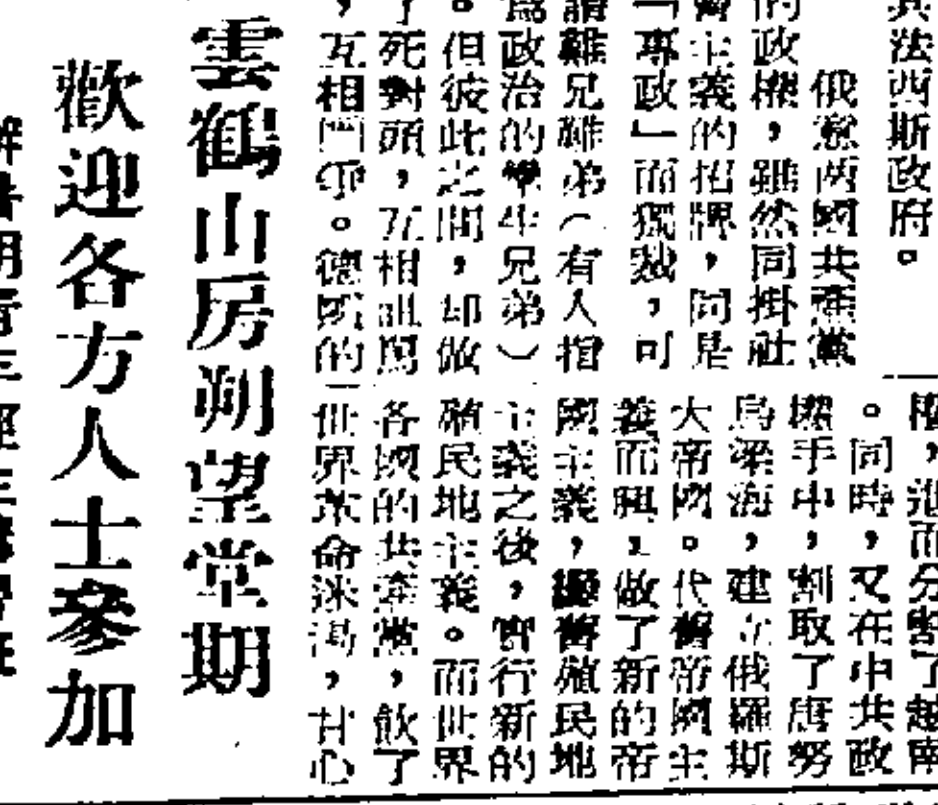 其法西斯政府。
俄兩國共產黨
的政權，雖然同掛社
會主義的招牌，同是
「專政」而獨裁，可
謂難兄難弟（有人指
為政治的孿生兄弟）
。但彼此之間，却做
了死對頭，互相詛罵
，互相鬥爭。德國的
權，進而分割了越南
。同時，又在中共政
權手中，割取了唐努
烏梁海，建立俄羅斯
大帝國。代舊帝國主
義而興，做了新的帝
國主義，繼舊殖民地
主義之後，實行新的
殖民地主義。而世界
各國的共產黨，飲了
世界革命迷湯，甘心
雲鶴山房朔望堂期
歡迎各方人士參加